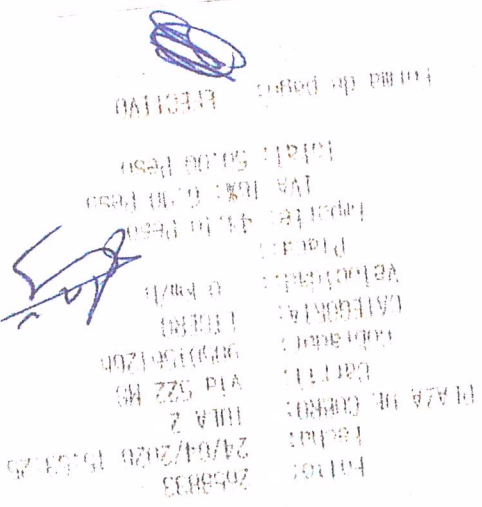 Folio: 2658833
Fecha: 24/04/2020 15:53:25
PLAZA DE COBRO: TULA 2
Carril: Via 522 MS
Cobrador:
CATEGORIA: LIGERO
Velocidad: 0 km/h
Placa:
Importe: 43.10 Peso
IVA 16%: 6.90 Peso
Total: 50.00 Peso
Forma de Pago: EFECTIVO